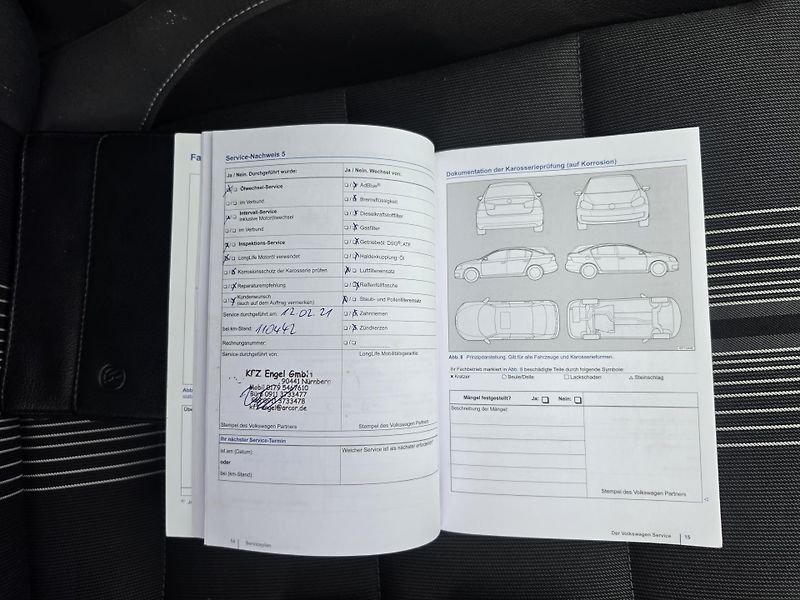 Fa
Service-Nachweis 5
Ja / Nein. Durchgeführt wurde:
Ölwechsel-Service
im Verbund
Intervall-Service
inklusive Motorölwechsel
im Verbund
Inspektions-Service
LongLife Motoröl verwendet
Korrosionsschutz der Karosserie prüfen
Reparaturempfehlung
Kundenwunsch
(auch auf dem Auftrag vermerken)
Service durchgeführt am: 12.02.21
bei km-Stand: 110442
Rechnungsnummer:
Service durchgeführt von:
KFZ Engel GmbH
90441 Nürnberg
Mobil 0179 5467610
0911 3733477
3733478
kfz engel@arcor.de
Stempel des Volkswagen Partners
Ihr nächster Service-Termin
ist am (Datum)
oder
bei (km-Stand)
Ja / Nein. Wechsel von:
AdBlue®
Bremsflüssigkeit
Dieselkraftstofffilter
Gasfilter
Getriebeöl: DSG®, ATF
Haldexkupplung: Öl
Luftfiltereinsatz
Reifenfüllflasche
Staub- und Pollenfiltereinsatz
Zahnriemen
Zündkerzen
LongLife Mobilitätsgarantie:
Stempel des Volkswagen Partners
Welcher Service ist als nächster erforderlich?
14 | Serviceplan
Dokumentation der Karosserieprüfung (auf Korrosion)
Abb. 8 Prinzipdarstellung. Gilt für alle Fahrzeuge und Karosserieformen.
Ihr Fachbetrieb markiert in Abb. 8 beschädigte Teile durch folgende Symbole:
Kratzer Beule/Delle Lackschaden Steinschlag
Mängel festgestellt? Ja: Nein:
Beschreibung der Mängel:
Stempel des Volkswagen Partners
Der Volkswagen Service | 15